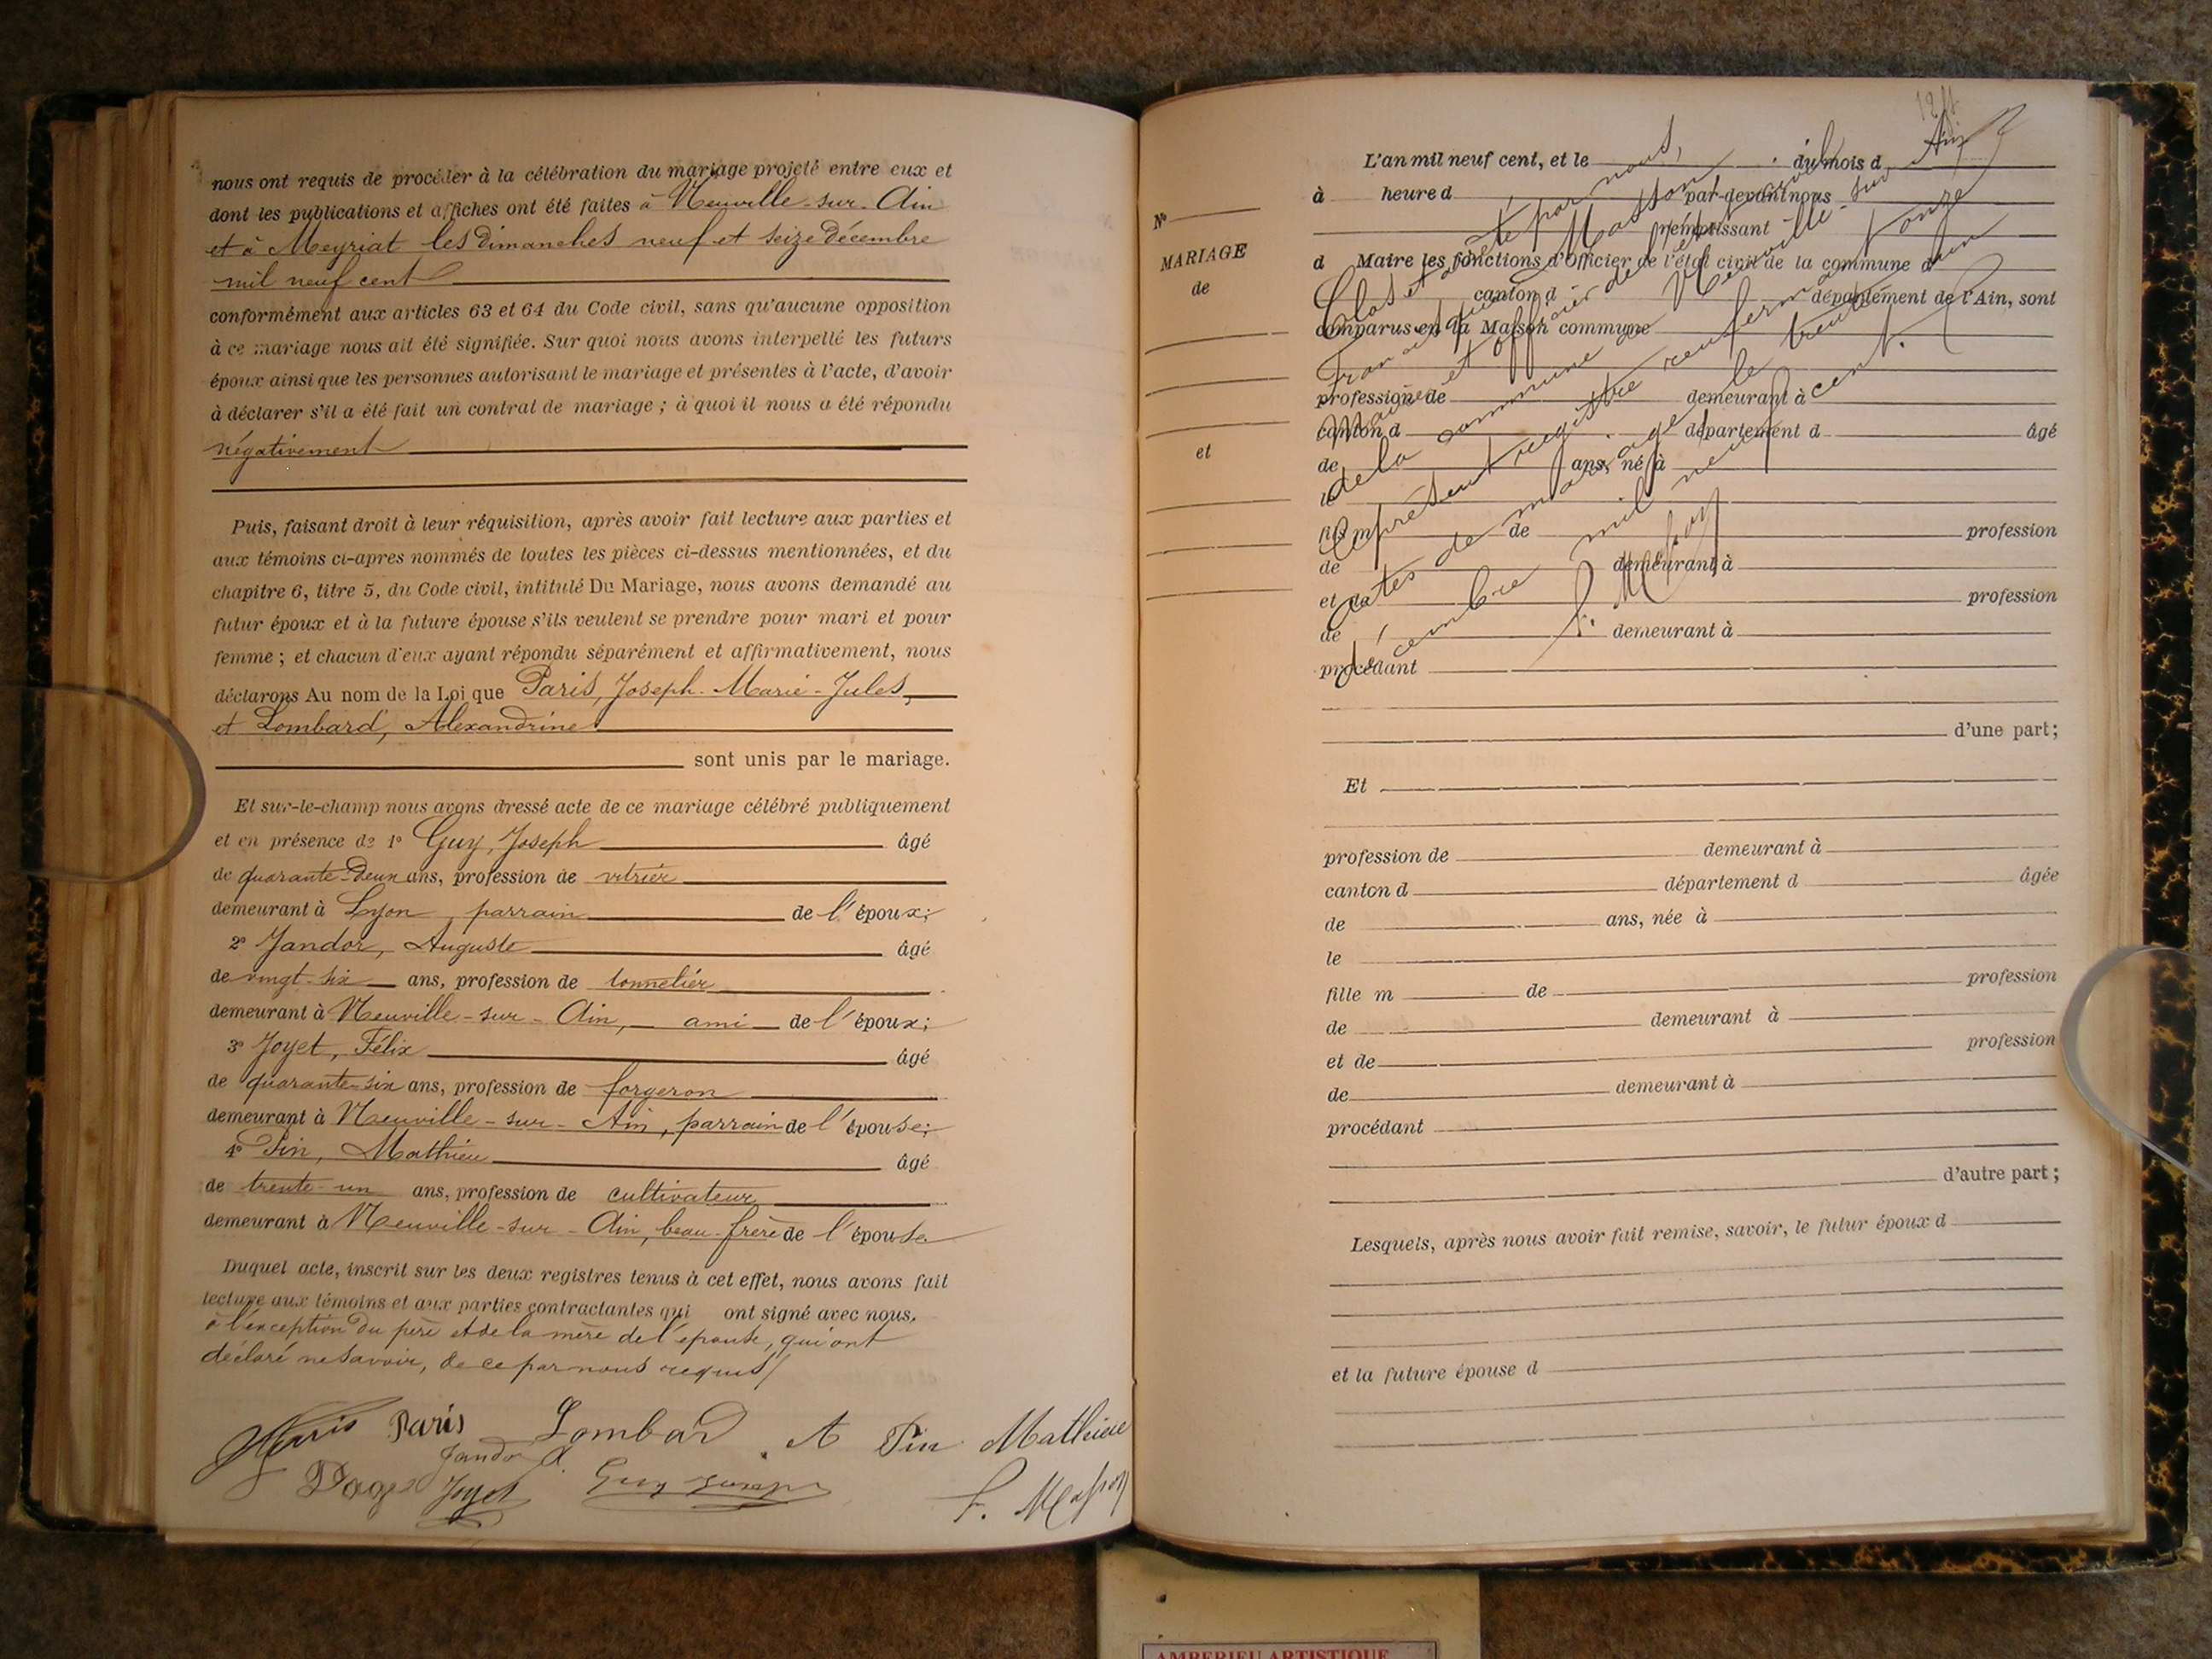 nous ont requis de procéder à la célébration du mariage projeté entre eux et
dont les publications et affiches ont été faites à Neuville-sur-Ain
et à Meyriat les Dimanches neuf et seize Décembre
mil neuf cent
conformément aux articles 63 et 64 du Code civil, sans qu'aucune opposition
à ce mariage nous ait été signifiée. Sur quoi nous avons interpellé les futurs
époux ainsi que les personnes autorisant le mariage et présentes à l'acte, d'avoir
à déclarer s'il a été fait un contrat de mariage ; à quoi il nous a été répondu
négativement
Puis, faisant droit à leur réquisition, après avoir fait lecture aux parties et
aux témoins ci-apres nommés de toutes les pièces ci-dessus mentionnées, et du
chapitre 6, titre 5, du Code civil, intitulé Du Mariage, nous avons demandé au
futur époux et à la future épouse s'ils veulent se prendre pour mari et pour
femme ; et chacun d'eux ayant répondu séparément et affirmativement, nous
déclarons Au nom de la Loi que Paris, Joseph-Marie-Jules,
et Lombard, Alexandrine
sont unis par le mariage.
Et sur-le-champ nous avons dressé acte de ce mariage célébré publiquement
et en présence de 1° Guy, Joseph âgé
de quarante-deux ans, profession de vitrier
demeurant à Lyon, parrain de l'époux;
2° Jandor, Auguste âgé
de vingt-six ans, profession de tonnelier
demeurant à Neuville-sur-Ain, ami de l'époux;
3° Joyet, Félix âgé
de quarante-six ans, profession de forgeron
demeurant à Neuville-sur-Ain, parrain de l'épouse;
4° Pin, Mathieu âgé
de trente-un ans, profession de cultivateur
demeurant à Neuville-sur-Ain, beau-frère de l'épouse
Duquel acte, inscrit sur les deux registres tenus à cet effet, nous avons fait
lecture aux témoins et aux parties contractantes qui ont signé avec nous.
à l'exception du père et de la mère de l'épouse, qui ont
déclaré ne savoir, de ce par nous requis
Paris Lombard A Pin Mathieu
Jandor A
Page Joyet Guy Joseph F. Masson
N°
MARIAGE
de
et
L'an mil neuf cent, et le du mois d
à heure d par-devant nous
remplissant
d Maire les fonctions d'Officier de l'état civil de la commune d
canton d département de l'Ain, sont
comparus en la Maison commune
profession de demeurant à
canton d département d âgé
de ans, né à
le
fils m de profession
de demeurant à
et de profession
de demeurant à
procédant
d'une part;
Clos et arrêté par nous,
Masson
Maire et officier de l'état civil
de la commune de Neuville-sur-Ain
le présent registre renfermant onze
actes de mariage le trente un
décembre mil neuf cent.
F. Masson
Et
profession de demeurant à
canton d département d âgée
de ans, née à
le
fille m de profession
de demeurant à
et de profession
de demeurant à
procédant
d'autre part ;
Lesquels, après nous avoir fait remise, savoir, le futur époux d
et la future épouse d
AMBERIEU ARTISTIQUE